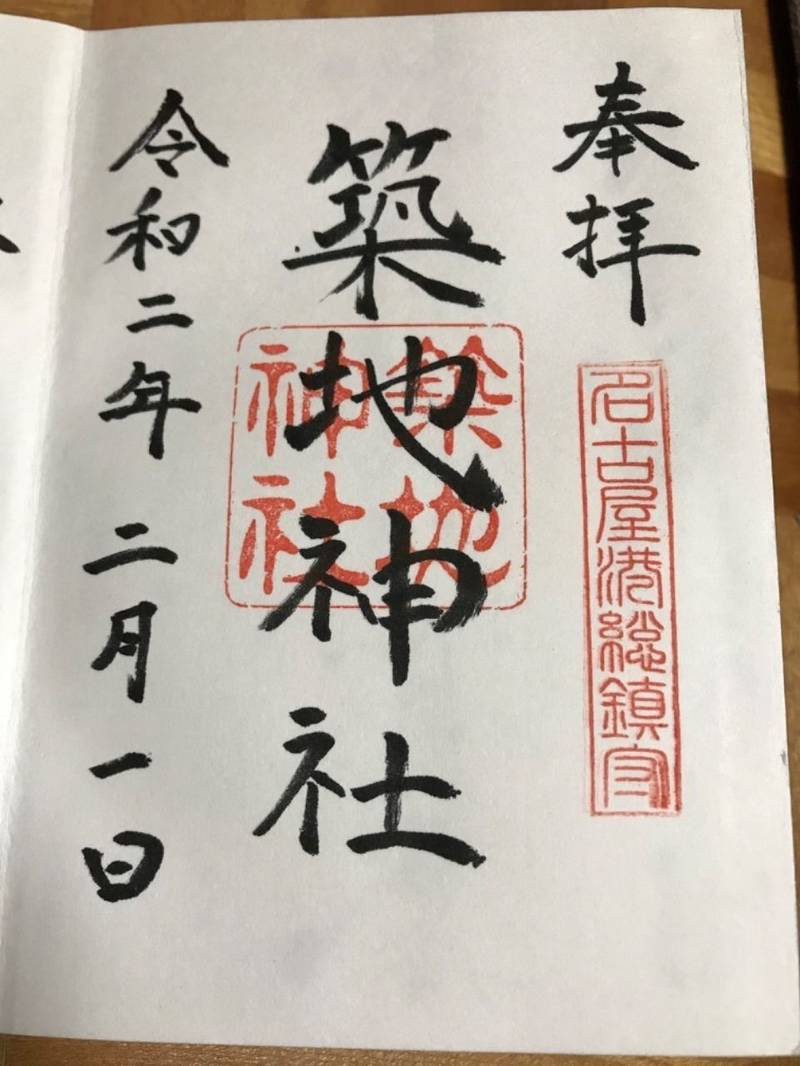 奉拝
名古屋港総鎮守
築地神社
築地
神社
令和二年 二月一日